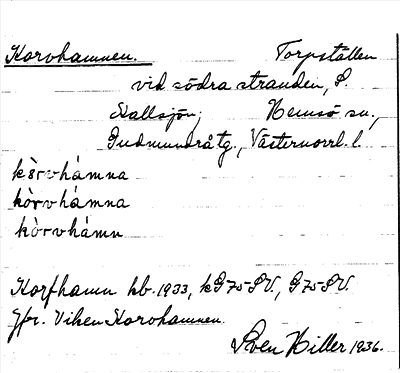 Korvhamnen. Torpställen
vid södra stranden, S.
Hallsjön; Hemsö sn.,
Gudmundråtg., Västernorrl. l.
kòrvhámna
kòrvhámna
kòrvhámn
Korfhamn kb. 1933, kG75SV., G75SV.
Jfr. Viken Korvhamnen.
Sven Hiller 1936.